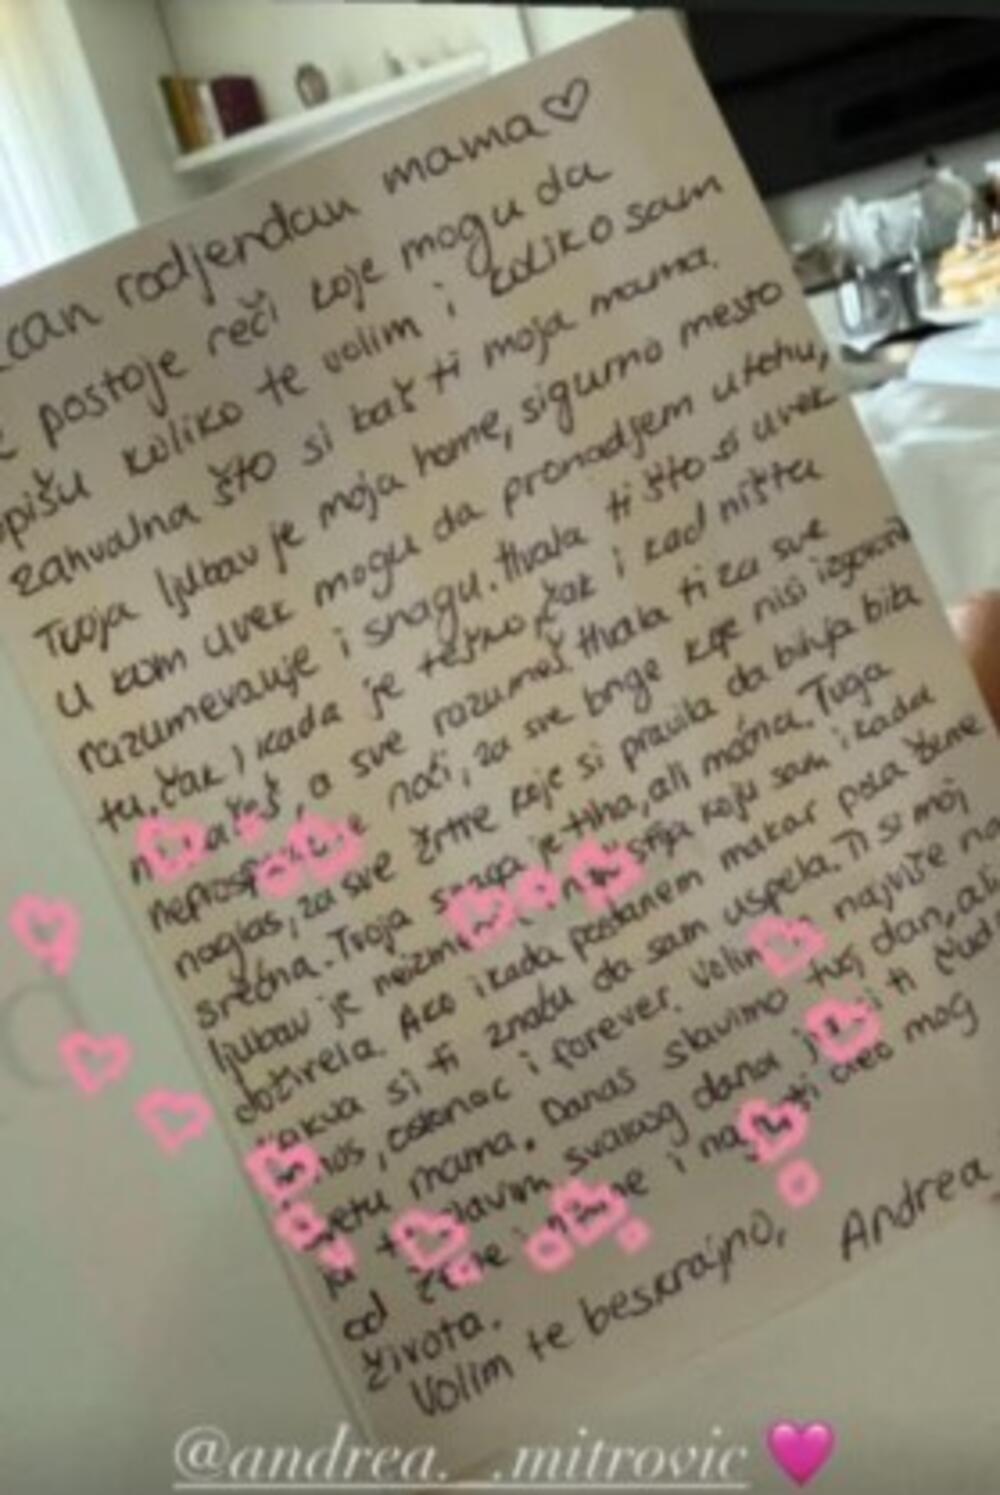 rodjendan mama♡
postoje reči koje mogu da
opišu koliko te volim i koliko sam
zahvalna što si baš ti moja mama.
Tvoja ljubav je moja home, sigurno mesto
u kom uvek mogu da pronadjem utehu,
razumevanje i snagu. Hvala ti što si uvek
tu, čak i kada je teško, čak i kad ništa
a sve razumeš. Hvala ti za sve
noći, za sve brige koje nisi
naglas, za sve žrtve koje si pravila da bih ja bila
srećna. Tvoja snaga je tiha, ali moćna. Tvoja
ljubav je koju sam i kada
doživela. Ako ikada postanem makar pola žene
kakva si ti znaću da sam uspela. Ti si moj
oslonac i forever. Volim najviše na
svetu mama. Danas slavimo tvoj dan, ali
ja slavim svakog dana ti
od i deo mog
života.
Volim te beskrajno, Andrea
@andrea._.mitrovic 💗